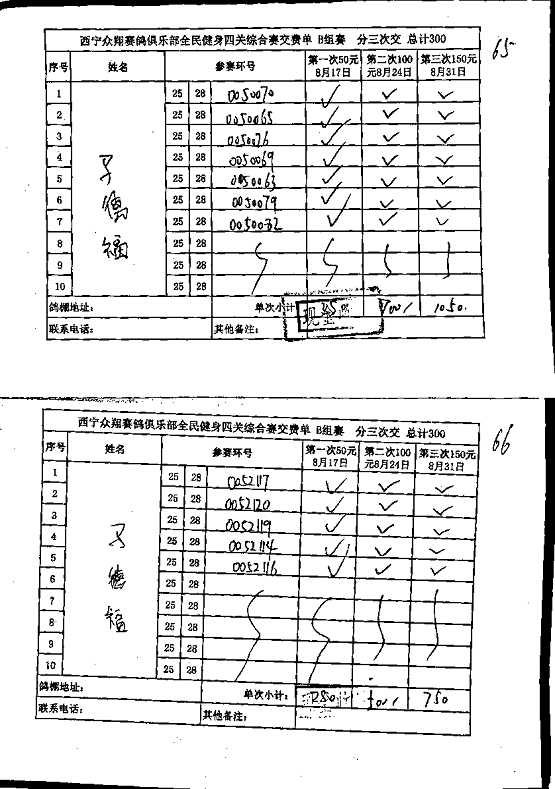 65
西宁众翔赛鸽俱乐部全民健身四关综合赛交费单 B组赛 分三次交 总计300
序号 姓名 参赛环号 第一次50元 8月17日 第二次100元8月24日 第三次150元 8月31日
1 25 28 0050070 ✓ ✓ ✓
2 25 28 0050065 ✓ ✓ ✓
3 25 28 0050076 ✓ ✓ ✓
4 25 28 0050069 ✓ ✓ ✓
5 25 28 0050063 ✓ ✓ ✓
6 25 28 0050079 ✓ ✓ ✓
7 25 28 0050032 ✓ ✓ ✓
8 25 28
9 25 28
10 25 28
福
鸽棚地址： 单次小计 1050.
联系电话： 其他备注： 现金
66
西宁众翔赛鸽俱乐部全民健身四关综合赛交费单 B组赛 分三次交 总计300
序号 姓名 参赛环号 第一次50元 8月17日 第二次100元8月24日 第三次150元 8月31日
1 25 28 0052117 ✓ ✓ ✓
2 25 28 0052120 ✓ ✓ ✓
3 25 28 0052119 ✓ ✓ ✓
4 25 28 0052114 ✓ ✓ ✓
5 25 28 0052116 ✓ ✓ ✓
6 25 28
7 25 28
8 25 28
9 25 28
10 25 28
德福
鸽棚地址： 单次小计： 250 750
联系电话： 其他备注：